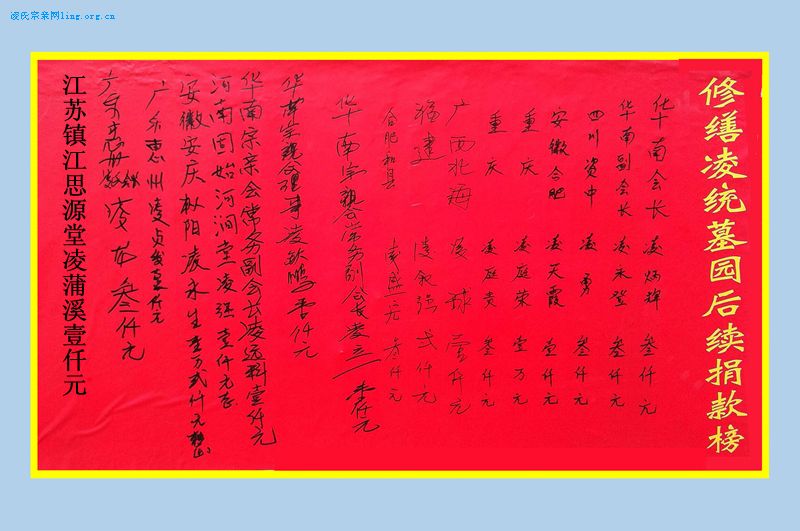 凌氏宗亲网ling.org.cn
修缮凌统墓园后续捐款榜
华南会长 凌炳辉 叁仟元
华南副会长 凌永登 叁仟元
四川资中 凌勇 叁仟元
安徽合肥 凌天霞 壹仟元
重庆 凌庭荣 壹万元
重庆 凌庭贵 叁仟元
广西北海 凌 壹仟元
福建 凌叙强 弍仟元
合肥和县 仟元
华南宗亲会常务副会长凌 仟元
华南宗亲会理事凌钦鹏壹仟元
华南宗亲会常务副会长凌远科壹仟元
河南固始河涧堂凌强壹仟元
安徽安庆枞阳凌永生壹万弍仟元
广东惠州凌贞 壹仟元
广东 凌 叁仟元
江苏镇江思源堂凌蒲溪壹仟元